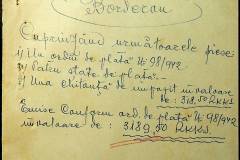 Borderou
Cuprinzând următoarele piese:
1) Un ordin de plată № 98/942
2) Patru state de plată.-
3) Una chitanță de impozit în valoare
de: 318,50 RKKS.
Emise Conform ord. de plată № 98/942
în valoare de: 3189,50 RKKS.